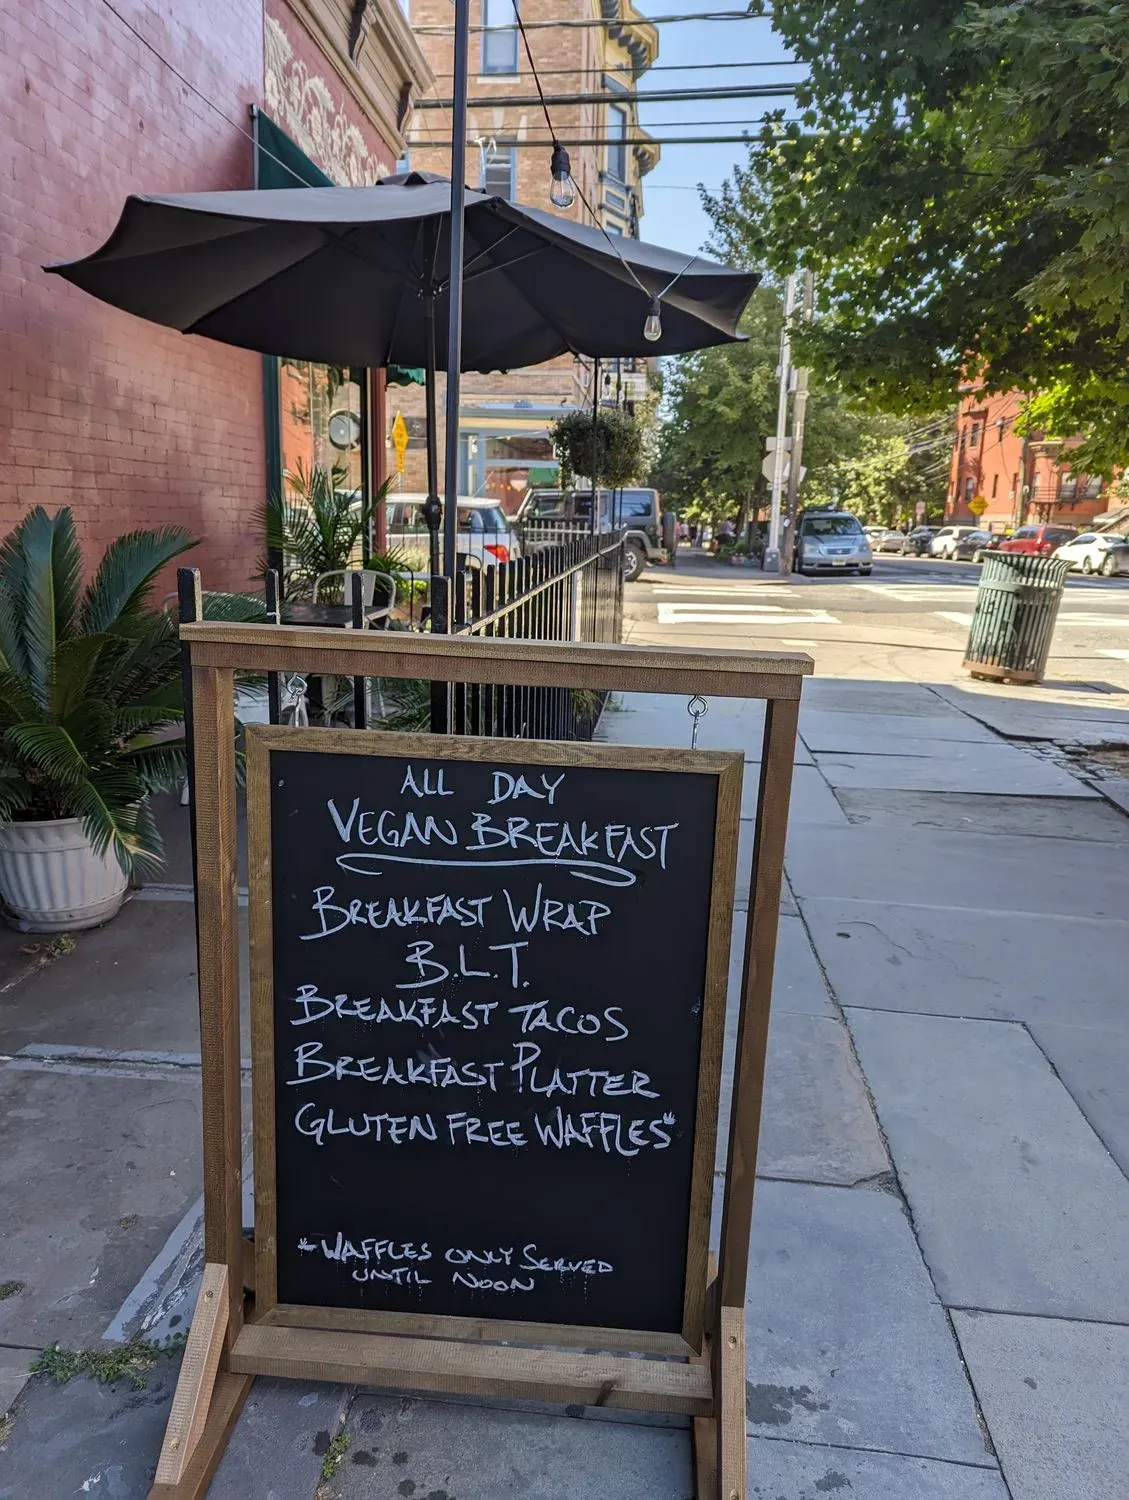 ALL DAY
VEGAN BREAKFAST
BREAKFAST WRAP
B.L.T.
BREAKFAST TACOS
BREAKFAST PLATTER
GLUTEN FREE WAFFLES*
*WAFFLES ONLY SERVED
UNTIL NOON